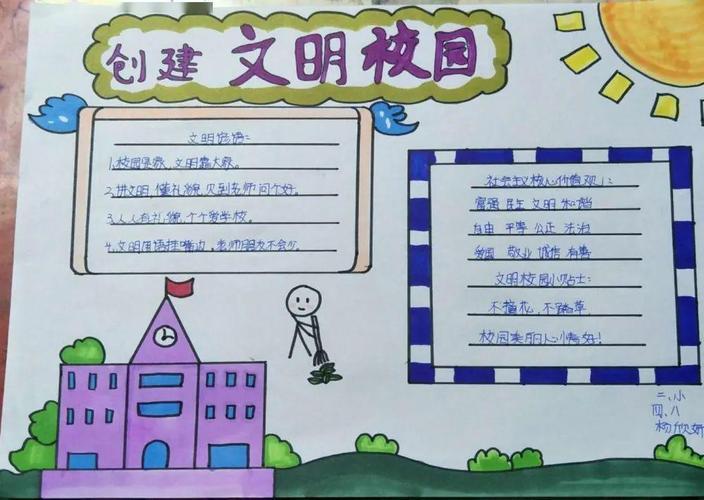 创建 文明校园
文明谚语:
1.校园是家,文明靠大家。
2.讲文明,懂礼貌,见到老师问个好。
3.人人有礼貌,个个爱学校。
4.文明用语挂嘴边,老师朋友不会少。
社会主义核心价值观:
富强 民主 文明 和谐
自由 平等 公正 法治
爱国 敬业 诚信 友善
文明校园小贴士:
不摘花,不踏草
校园美丽心情好!
二、小
四、八
杨欣妍